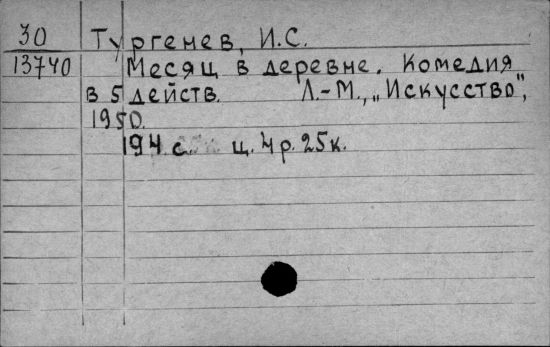 30 Тургенев, И.С.
13740 Месяц в деревне. Комедия
в 5 действ. Л.-М., „Искусство",
1950.
194 с. ц. 4р. 25к.